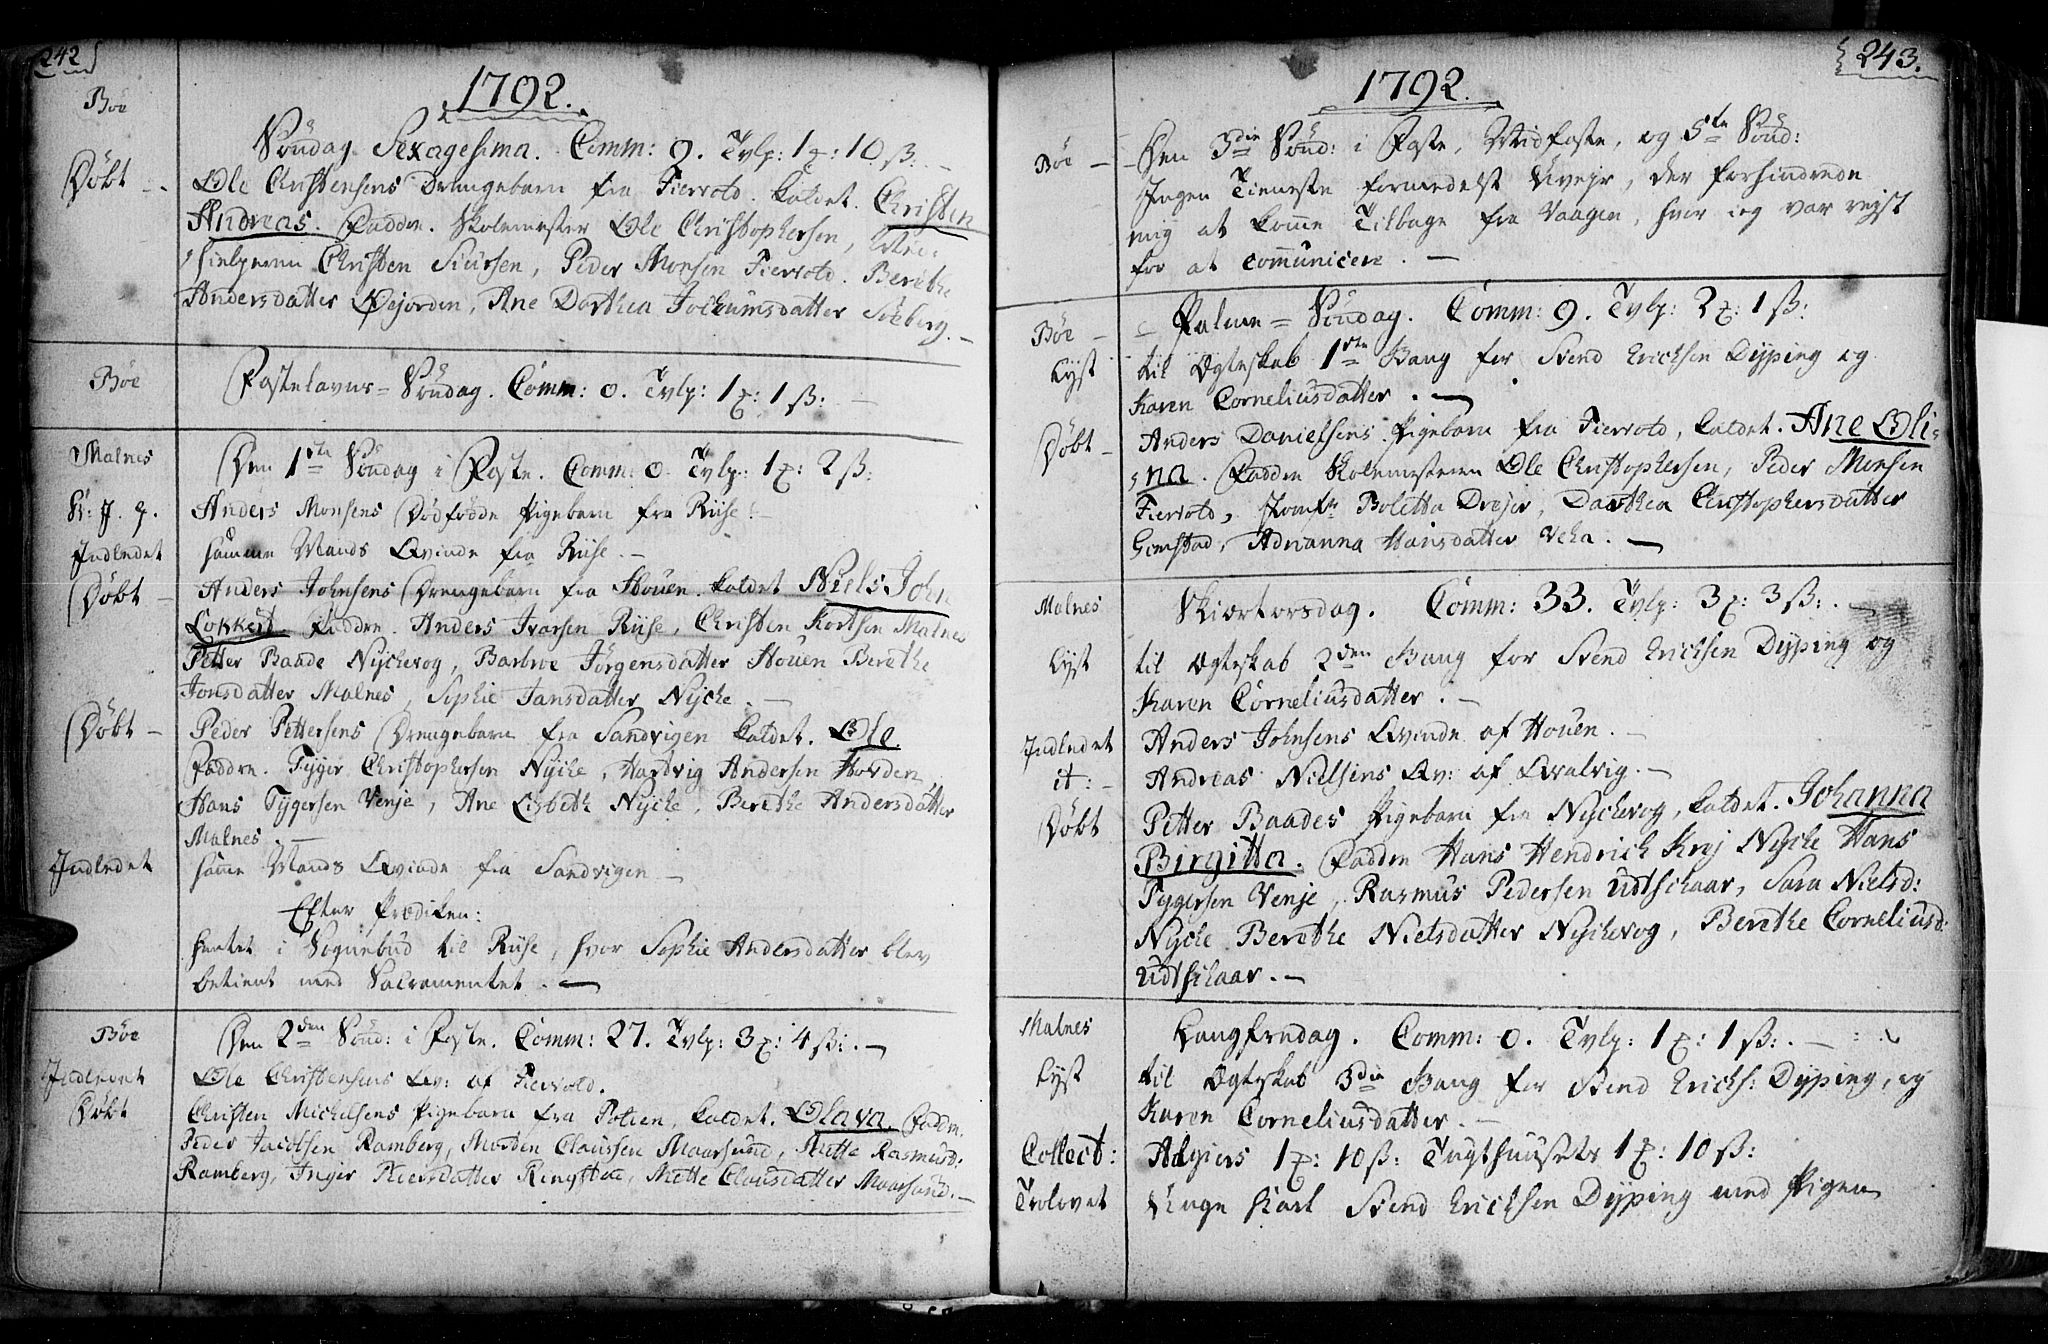 242
1792.
Bøe
Søndag Sexagesima. Comm: 0. Tvlp: 1 : 10 ß: –
Døbt – Ole Christensens Drengebarn fra Fiervold. kaldet. Christen
Andreas. Faddre. Skolemester Ole Christophersen, Med-
hielperen Christen Siursen, Peder Monsen Fiervold. Berethe
Andersdatter Øejorden, Ane Dorthea Jochumsdatter Søeberg. –
Bøe
Fastelavns-Søndag. Comm: 0. Tvlp: 1 : 1 ß: –
Malnes
Den 1ste Søndag i Faste. Comm: 0. Tvlp: 1 : 2 ß:
Anders Monsens Dødfødde Pigebarn fra Riise. –
Indledet samme Mands Qvinde fra Riise. –
Døbt – Anders Johnsens Drengebarn fra Houen. kaldet Niels John
Lokkert. Faddre. Anders Ivarsen Riise, Christen Kortsen Malnes
Petter Baade Nyckevog, Barbroe Jørgensdatter Houen Berethe
Jonsdatter Malnes, Sophie Jansdatter Nycke. –
Døbt – Peder Pettersens Drengebarn fra Sandvigen kaldet. Ole
Faddre. Tyger Christophersen Nycke, Hartvig Andersen Hovden
Hans Tygersen Venje, Ane Lisbeth Nycke, Berethe Andersdatter
Malnes. –
Indledet samme Mands Qvinde fra Sandvigen –
Efter Prædiken:
hentet i Sognebud til Riise, hvor Sophie Andersdatter blev
betient med Sacramentet. –
Bøe
Den 2den Sønd: i Faste. Comm: 27. Tvlp: 3 : 4 ß: –
Indledet Ole Christensens Qv: af Fiervold.
Døbt Christen Michelsens Pigebarn fra Pollen, kaldet. Olava. Faddre.
Peder Jacobsen Ramberg, Morden Claussen Maarsund, Mette Rasmusd:
Ramberg, Inger Peersdatter Ringstad, Mette Clausdatter Maarsund. –
243.
1792.
Bøe – Den 3die Sønd: i Faste, Midfaste, og 5te Sønd:
Ingen Tieneste formedelst Uvejr, der forhindrede
mig at komme Tilbage fra Vaagen, hvor ieg var rejst
for at communicere. –
Bøe – Palme-Søndag. Comm: 9. Tvlp: 2 : 1 ß:
Lyst til Ægteskab 1ste Gang for Svend Erichsen Dyping og
Karen Corneliusdatter. –
Døbt – Anders Danielsens Pigebarn fra Fiervold, kaldet. Ane Oli-
na. Faddre Skolemesteren Ole Christophersen, Peder Monsen
Fiervold, Jomfr Boletta Drejer, Dorthea Christophersdatter
Gimstad, Adrianna Hansdatter Veha. –
Malnes
Skiærtorsdag. Comm: 33. Tvlp: 3 : 3 ß: –
Lyst til Ægteskab 2den Gang for Svend Erichsen Dyping og
Karen Corneliusdatter. –
Indledet Anders Johnsens Qvinde af Houen. –
it: – Andreas Nielsens Qv: af Qvalvig. –
Døbt Petter Baades Pigebarn fra Nyckevog, kaldet. Johanna
Birgitta. Faddre Hans Hendrich Krej Nycke Hans
Tygersen Venje, Rasmus Pedersen Udtschaar, Sara Nielsd:
Nycke Berethe Nielsdatter Nyckevog, Berethe Corneliusd:
Udtschaar. –
Malnes
Langfredag. Comm: 0. Tvlp: 1 : 1 ß: –
Lyst til Ægteskab 3die Gang for Svend Erichs: Dyping, og
Karen Corneliusdatter. –
Collect: Algiers 1 : 10 ß: Tugthuusets 1 : 10 ß:
Trolovet Unge Karl Svend Erichsen Dyping med Pigen